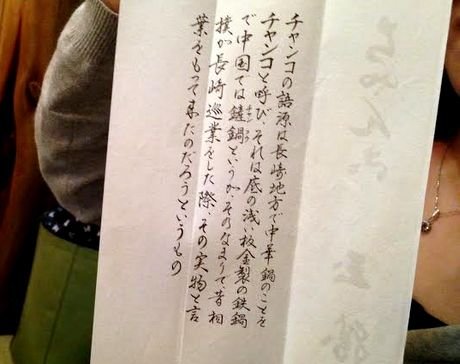 チャンコの語源は長崎地方で中華鍋のことを
チャンコと呼び、それは底の浅い板金製の鉄鍋
で中国では鏟鍋というが、そのなまりで昔相
チャンクオ
撲が長崎巡業をした際、その実物と言
葉をもって来たのだろうというもの